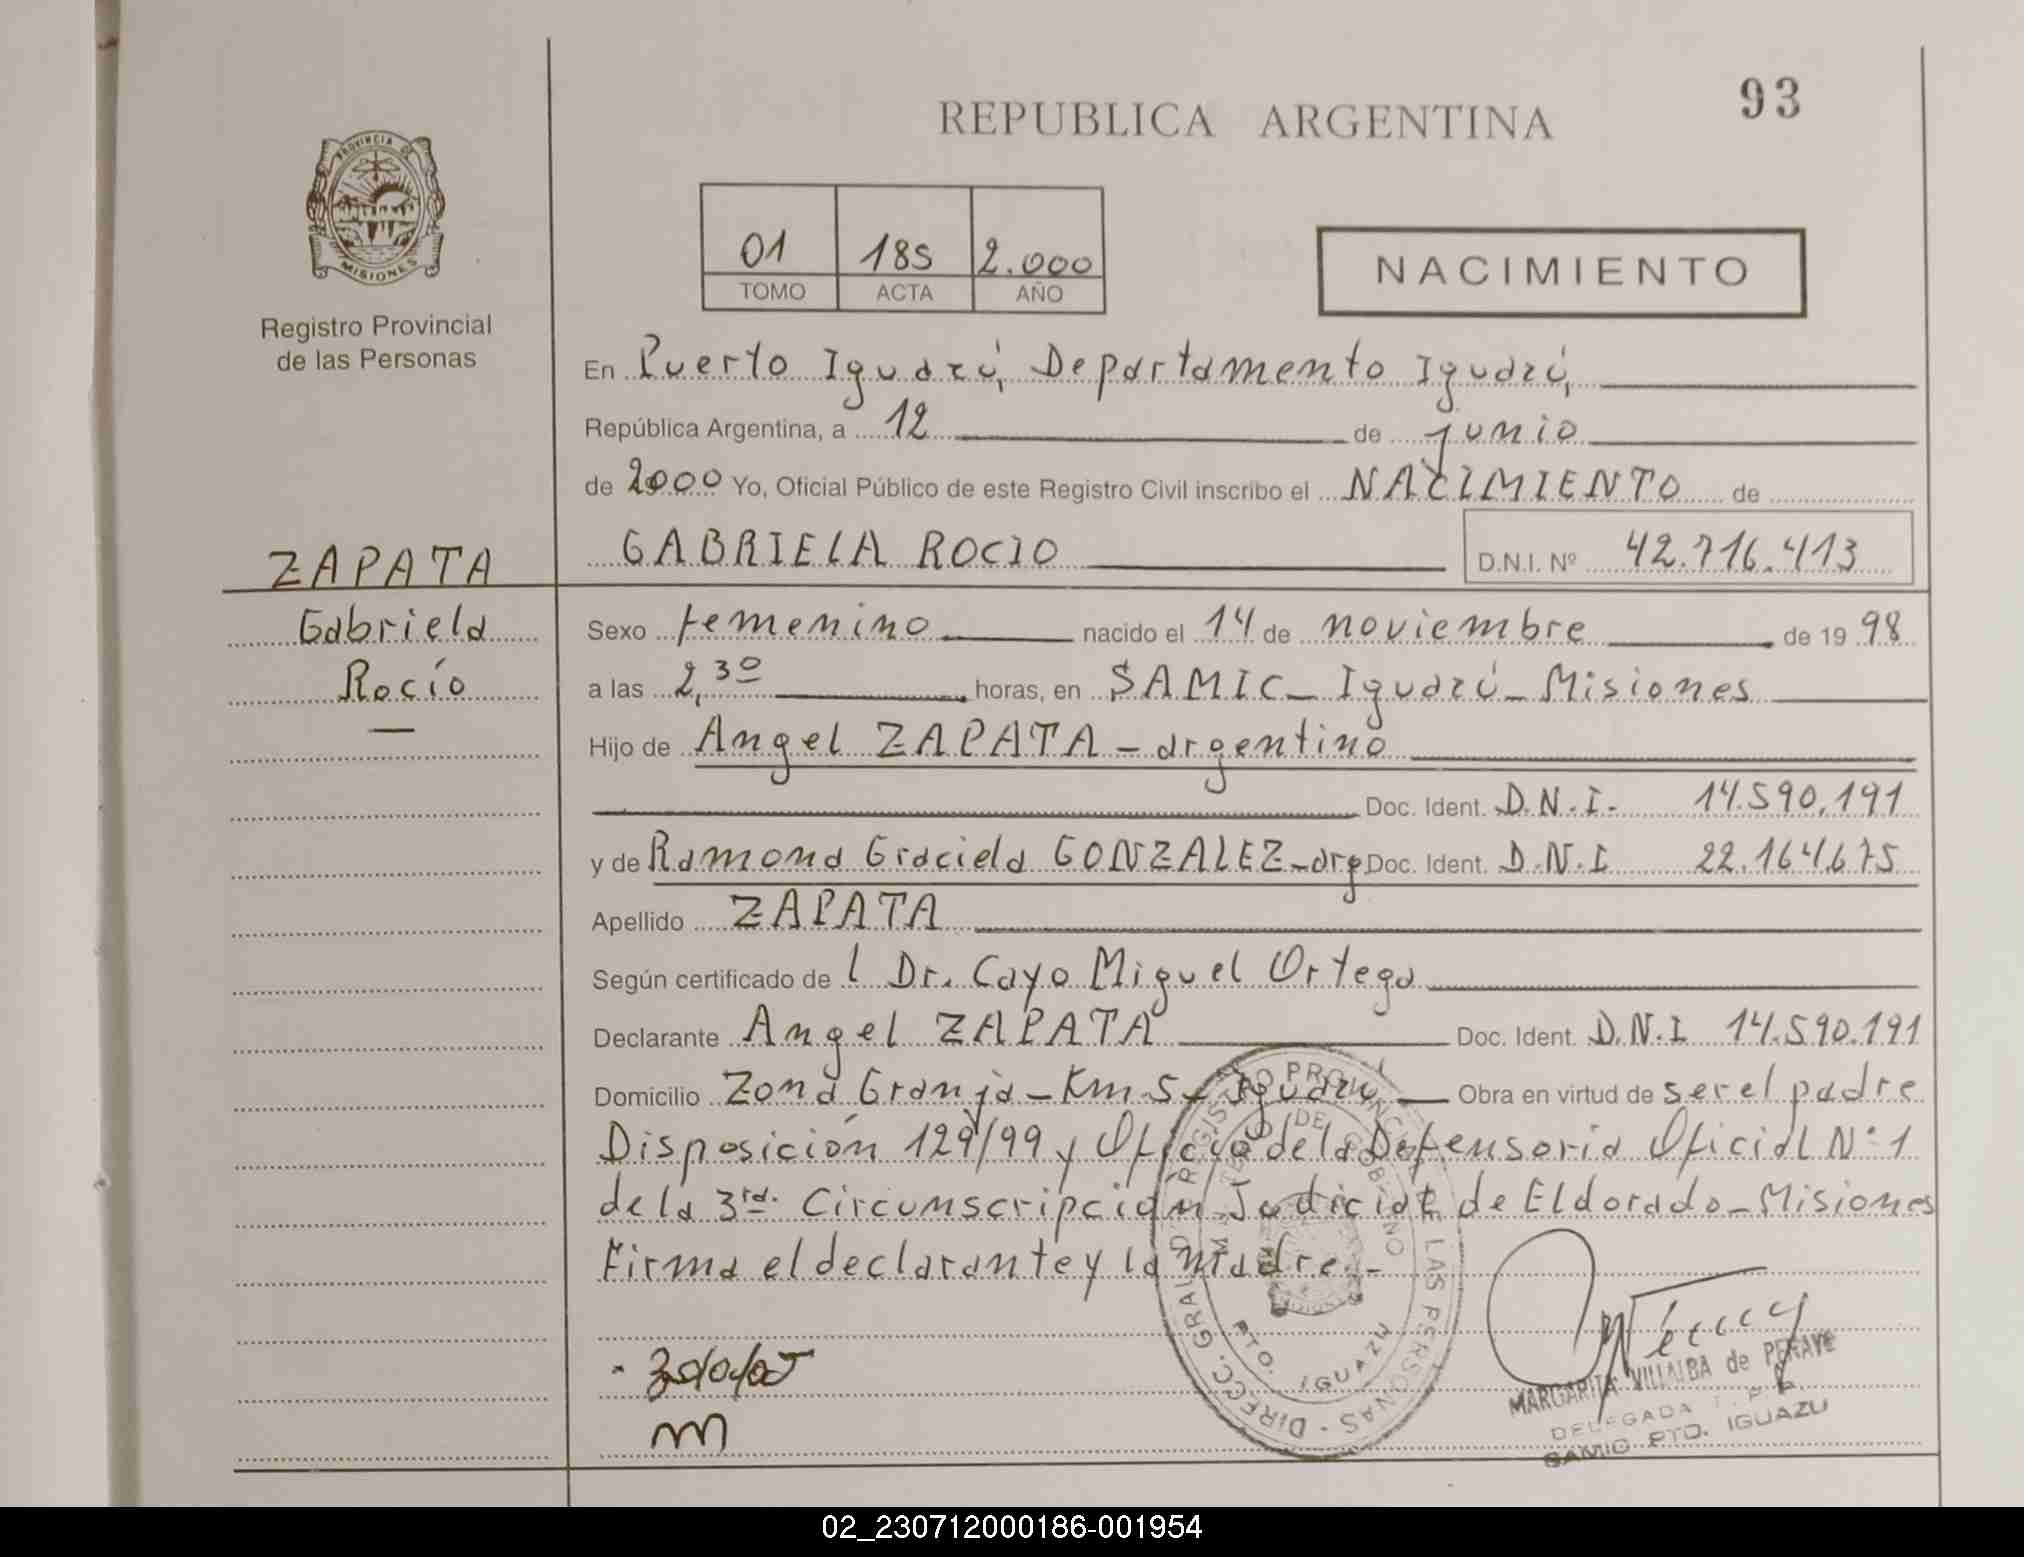 93
REPUBLICA ARGENTINA
PROVINCIA DE
MISIONES
Registro Provincial
de las Personas
01 185 2.000
TOMO ACTA AÑO
NACIMIENTO
En Puerto Iguazú, Departamento Iguazú,
República Argentina, a 12 de junio
de 2000 Yo, Oficial Público de este Registro Civil inscribo el NACIMIENTO de
ZAPATA
Gabriela
Rocío
GABRIELA ROCIO D.N.I. Nº 42.716.413
Sexo femenino nacido el 14 de noviembre de 19 98
a las 2,30 horas, en SAMIC - Iguazú - Misiones
Hijo de Angel ZAPATA - argentino
Doc. Ident. D.N.I. 14.590.191
y de Ramona Graciela GONZALEZ - arg Doc. Ident. D.N.I 22.164.675
Apellido ZAPATA
Según certificado de l Dr. Cayo Miguel Ortega
Declarante Angel ZAPATA Doc. Ident. D.N.I 14.590.191
Domicilio Zona Granja - Km 5 - Iguazú Obra en virtud de ser el padre
Disposición 129/99 y Oficio de la Defensoría Oficial Nº 1
de la 3ra. Circumscripción Judicial de Eldorado - Misiones
Firma el declarante y la madre. -
DIRECC. GRAL. D REGISTRO PROVINCIAL DE LAS PERSONAS
DE GOBIERNO
PTO. IGUAZU
MARGARITA VILLALBA de PERAYE
DELEGADA
SAMIC PTO. IGUAZU
02_230712000186-001954